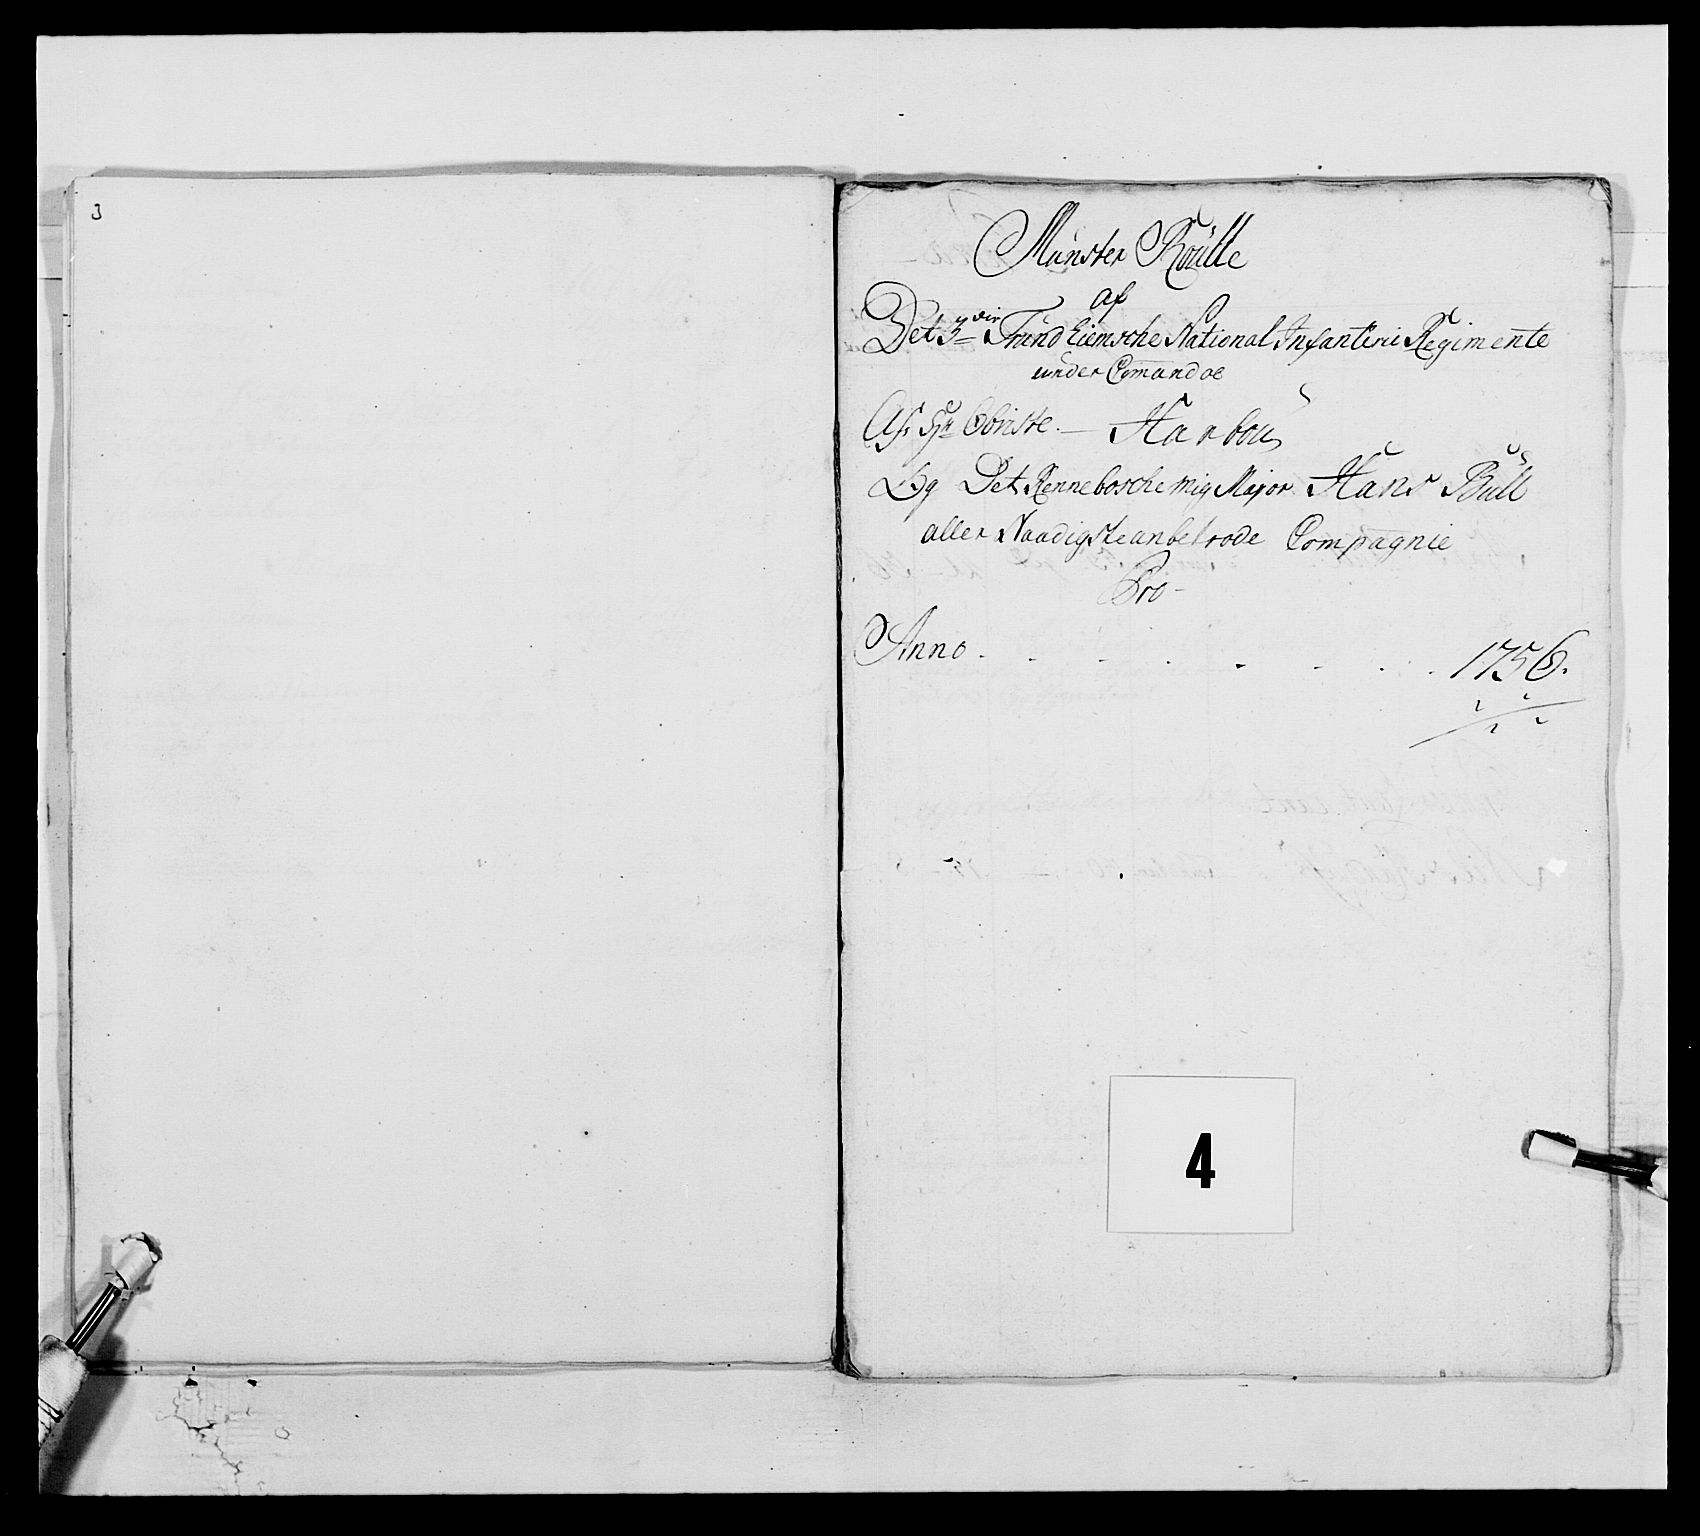 3
Munster Roulle
af
Det 3die Trundhiemsche National Infanterie Regimente
under Comandoe
Af Hr Obriste - Harbou
Og Det Rennebosche mig Major Hans Bull
aller Naadigste anbetrode Compagnie
Pro -
Anno - - - - - - - 1756.
4